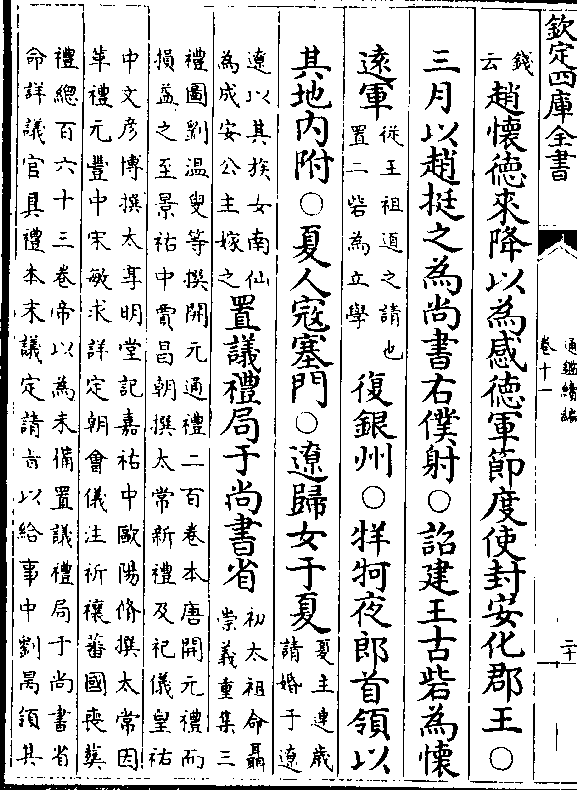 欽定四庫全書
通鑑續編
卷十一
二十
錢
云
趙懷德來降以為感德軍節度使封安化郡王○
三月以趙挺之為尚書右僕射○詔建王古砦為懷
遠軍
從王祖道之請也
置二砦為立學
復銀州○牂牁夜郎首領以
其地內附○夏人寇塞門○遼歸女于夏
夏主連歲
請婚于遼
遼以其族女南仙
為成安公主嫁之
置議禮局于尚書省
初太祖命聶
崇義重集三
禮圖劉温叟等撰開元通禮二百卷本唐開元禮而
損益之至景祐中賈昌朝撰太常新禮及祀儀皇祐
中文彥博撰太享明堂記嘉祐中歐陽脩撰太常因
革禮元豐中宋敏求詳定朝會儀注祈禳蕃國喪葬
禮總百六十三卷帝以為未備置議禮局于尚書省
命詳議官具禮本末議定請旨以給事中劉昺領其